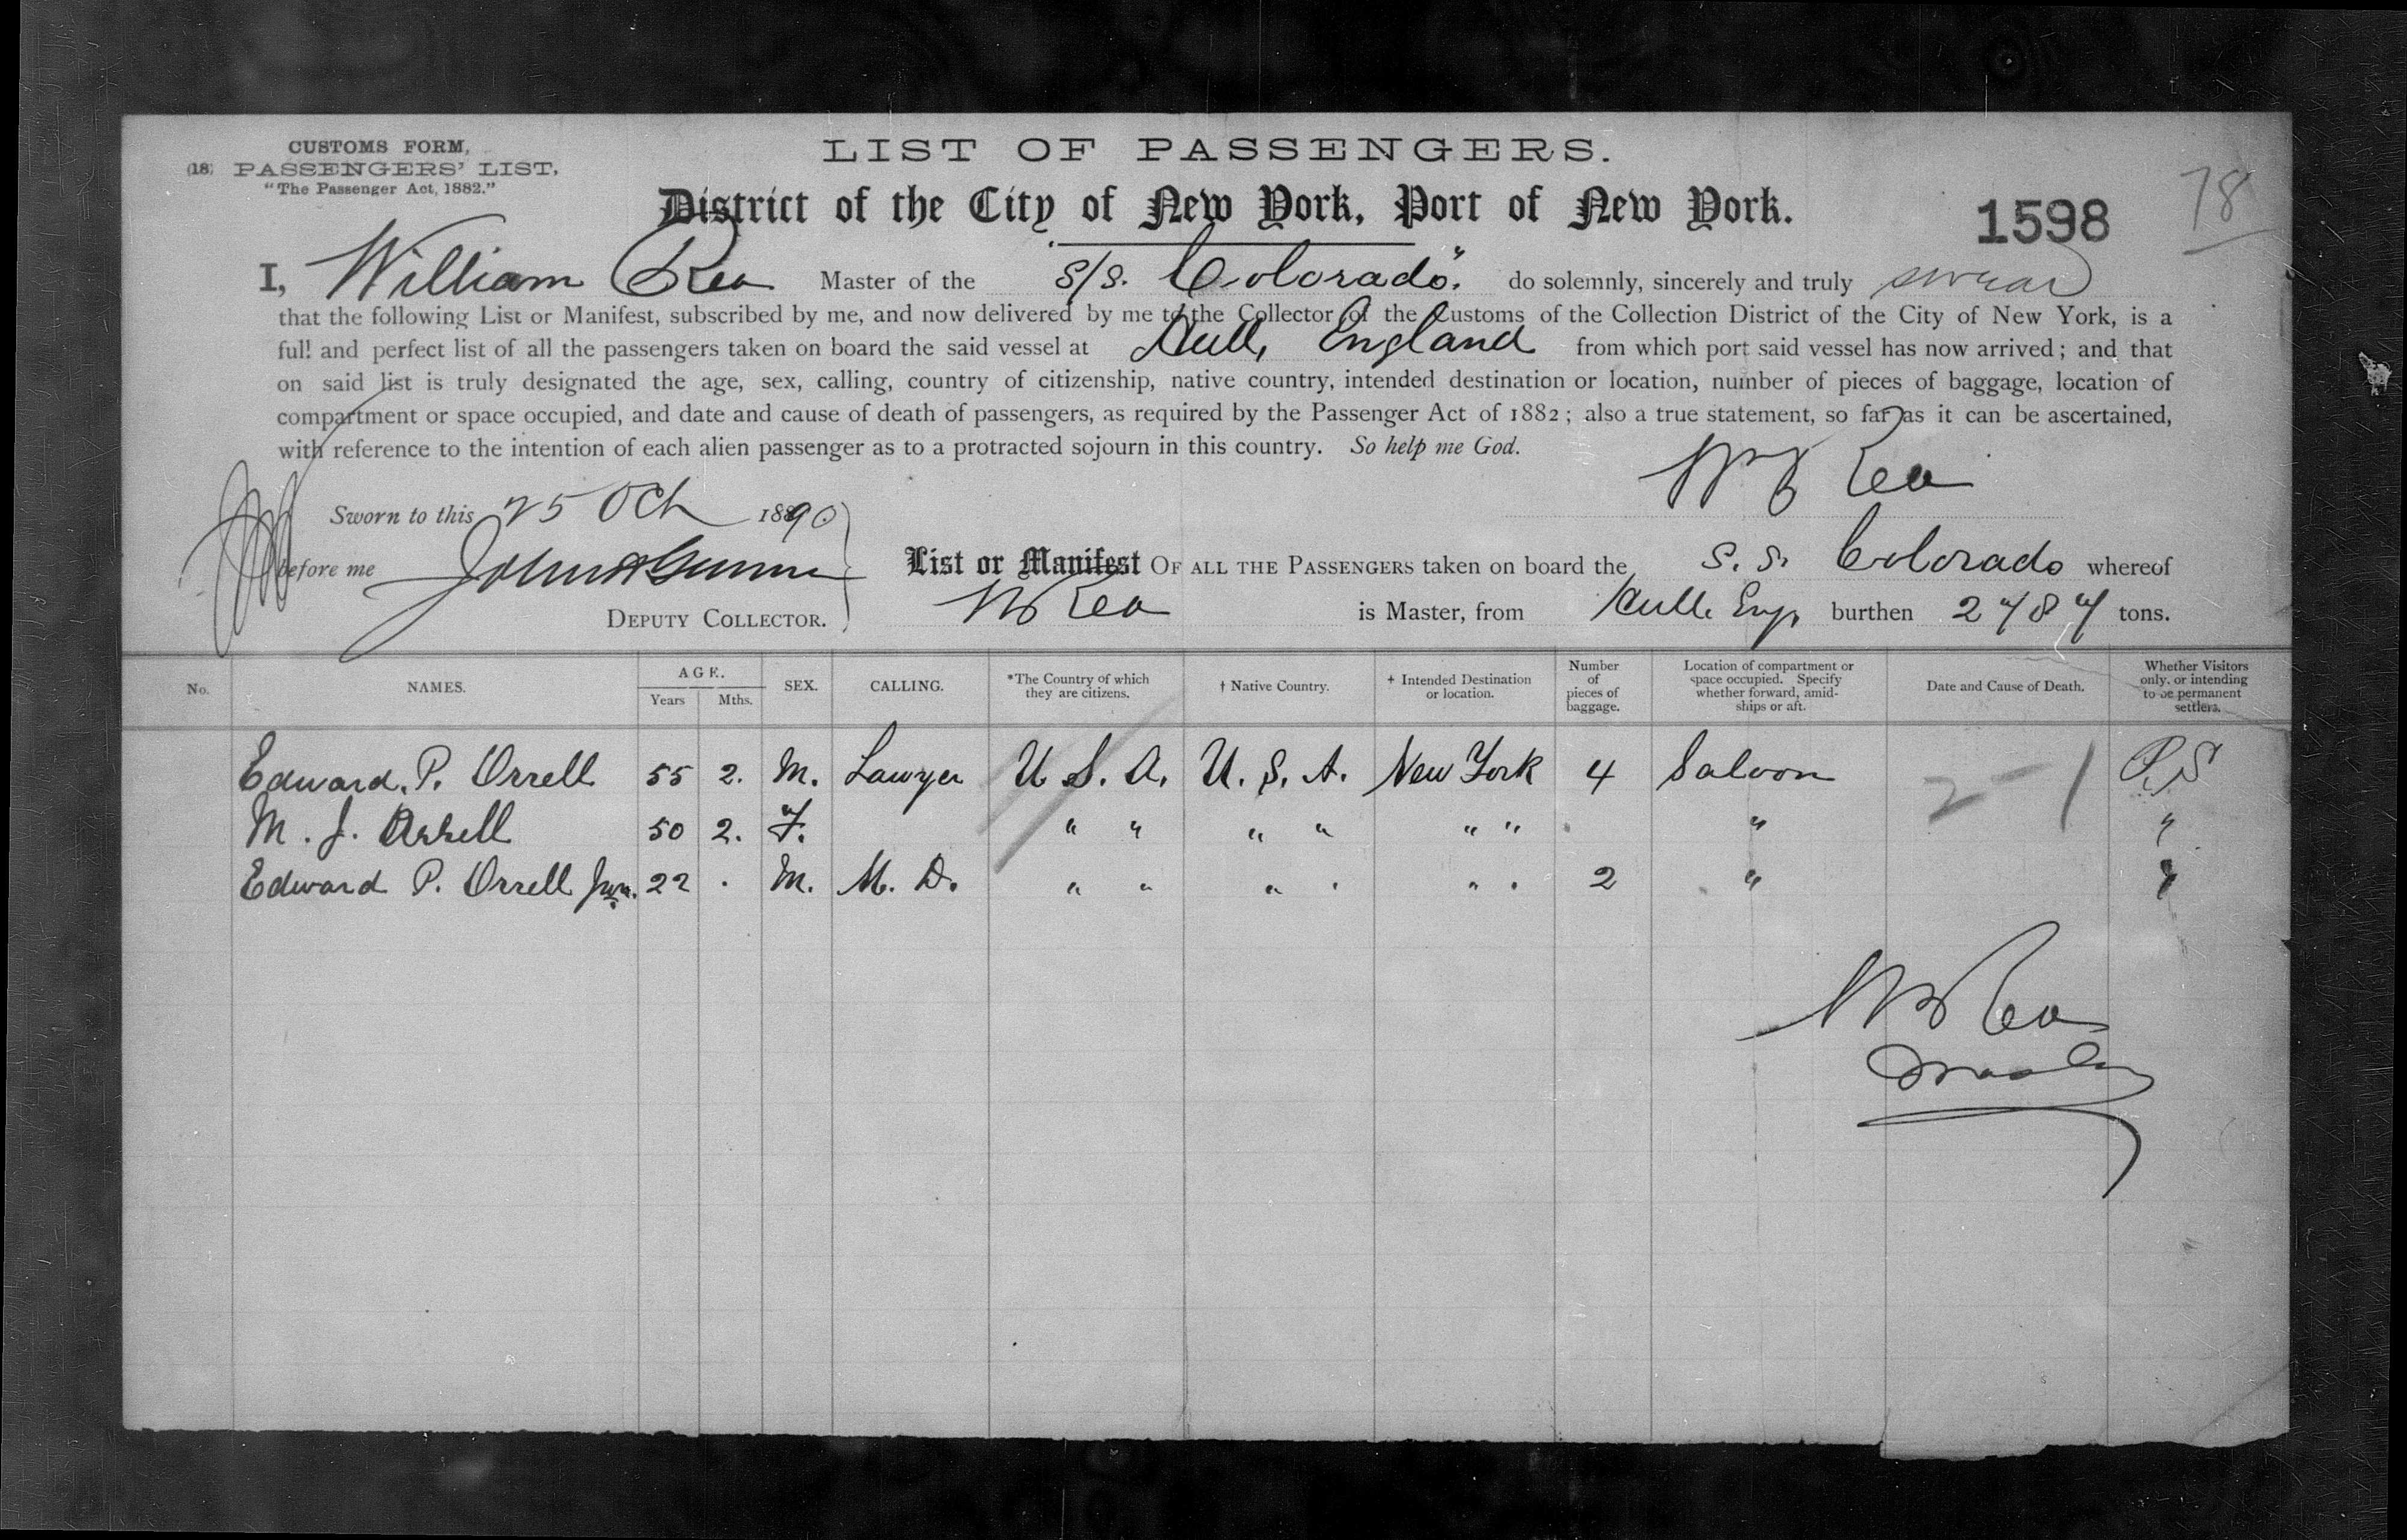 CUSTOMS FORM,
(18) PASSENGERS' LIST,
"The Passenger Act, 1882."
LIST OF PASSENGERS.
District of the City of New York, Port of New York.
1598
78
I, William Rea Master of the s/s. "Colorado". do solemnly, sincerely and truly swear
that the following List or Manifest, subscribed by me, and now delivered by me to the Collector of the Customs of the Collection District of the City of New York, is a
full and perfect list of all the passengers taken on board the said vessel at Hull, England from which port said vessel has now arrived; and that
on said list is truly designated the age, sex, calling, country of citizenship, native country, intended destination or location, number of pieces of baggage, location of
compartment or space occupied, and date and cause of death of passengers, as required by the Passenger Act of 1882; also a true statement, so far as it can be ascertained,
with reference to the intention of each alien passenger as to a protracted sojourn in this country. So help me God.
Wm Rea
Sworn to this 25 Oct 1890
before me John A Gunn
DEPUTY COLLECTOR.
List or Manifest OF ALL THE PASSENGERS taken on board the S. S. Colorado whereof
W Rea is Master, from Hull Eng. burthen 2787 tons.
No. NAMES. AGE. Years Mths. SEX. CALLING. *The Country of which they are citizens. † Native Country. + Intended Destination or location. Number of pieces of baggage. Location of compartment or space occupied. Specify whether forward, amidships or aft. Date and Cause of Death. Whether Visitors only, or intending to be permanent settlers.
Edward. P. Orrell 55 2. M. Lawyer U. S. A. U. S. A. New York 4 Saloon 2-1 P.S
M. J. Orrell 50 2. F. " " " " " " " "
Edward P. Orrell Junr. 22 . M. M. D. " " " " " " 2 " "
W Rea
Master